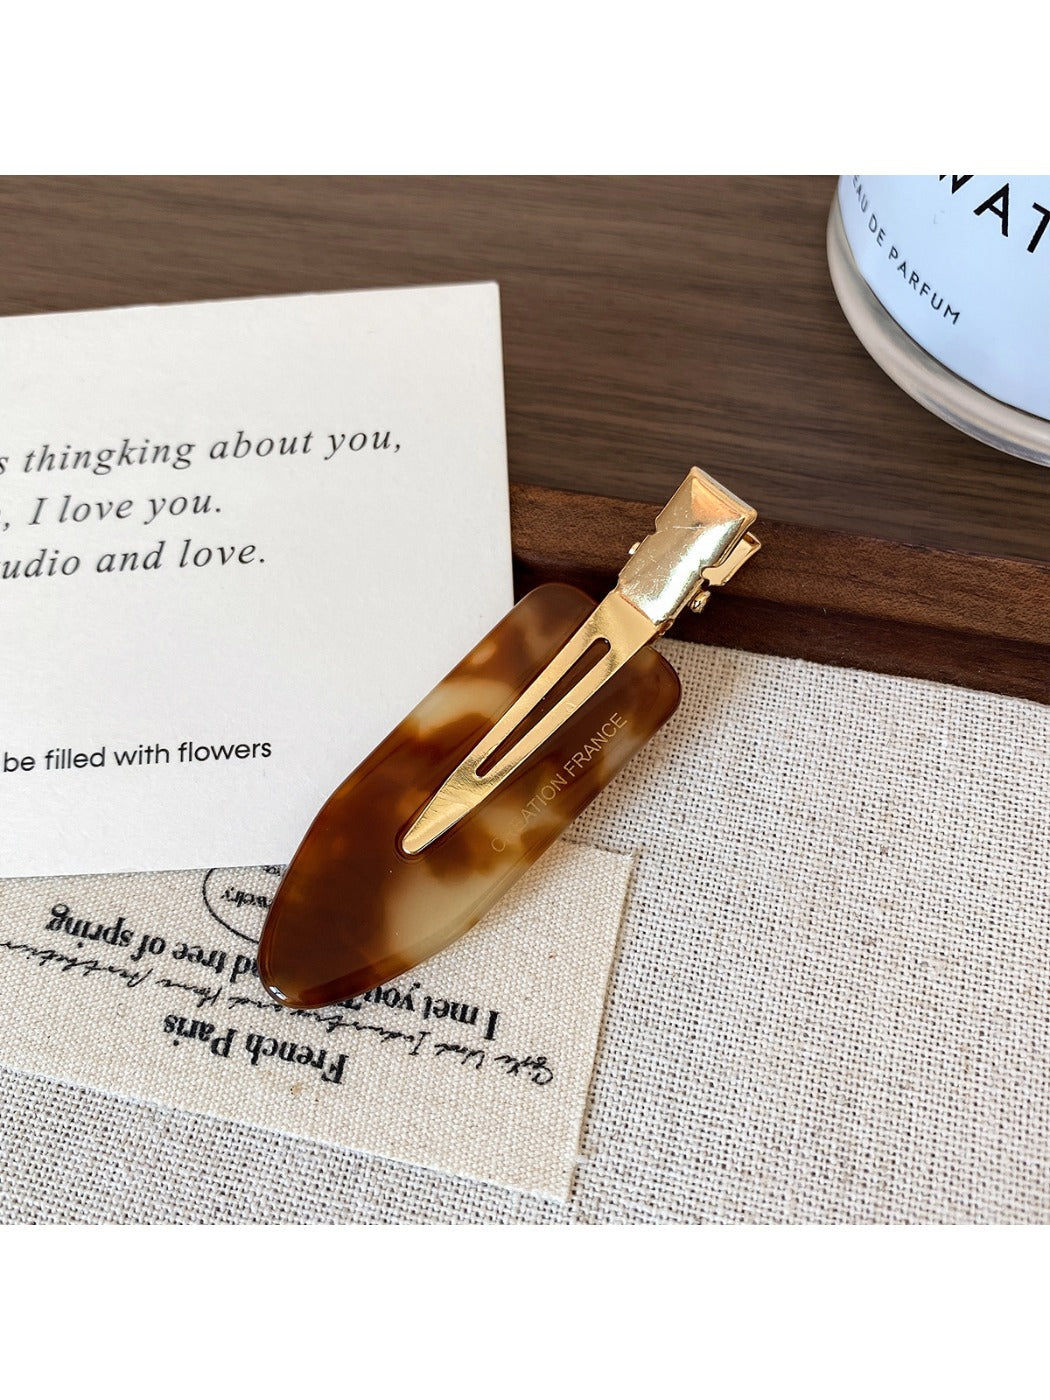 WAT
EAU DE PARFUM
s thingking about you,
, I love you.
udio and love.
be filled with flowers
CREATION FRANCE
French Paris
I met you
d tree of spring
welry